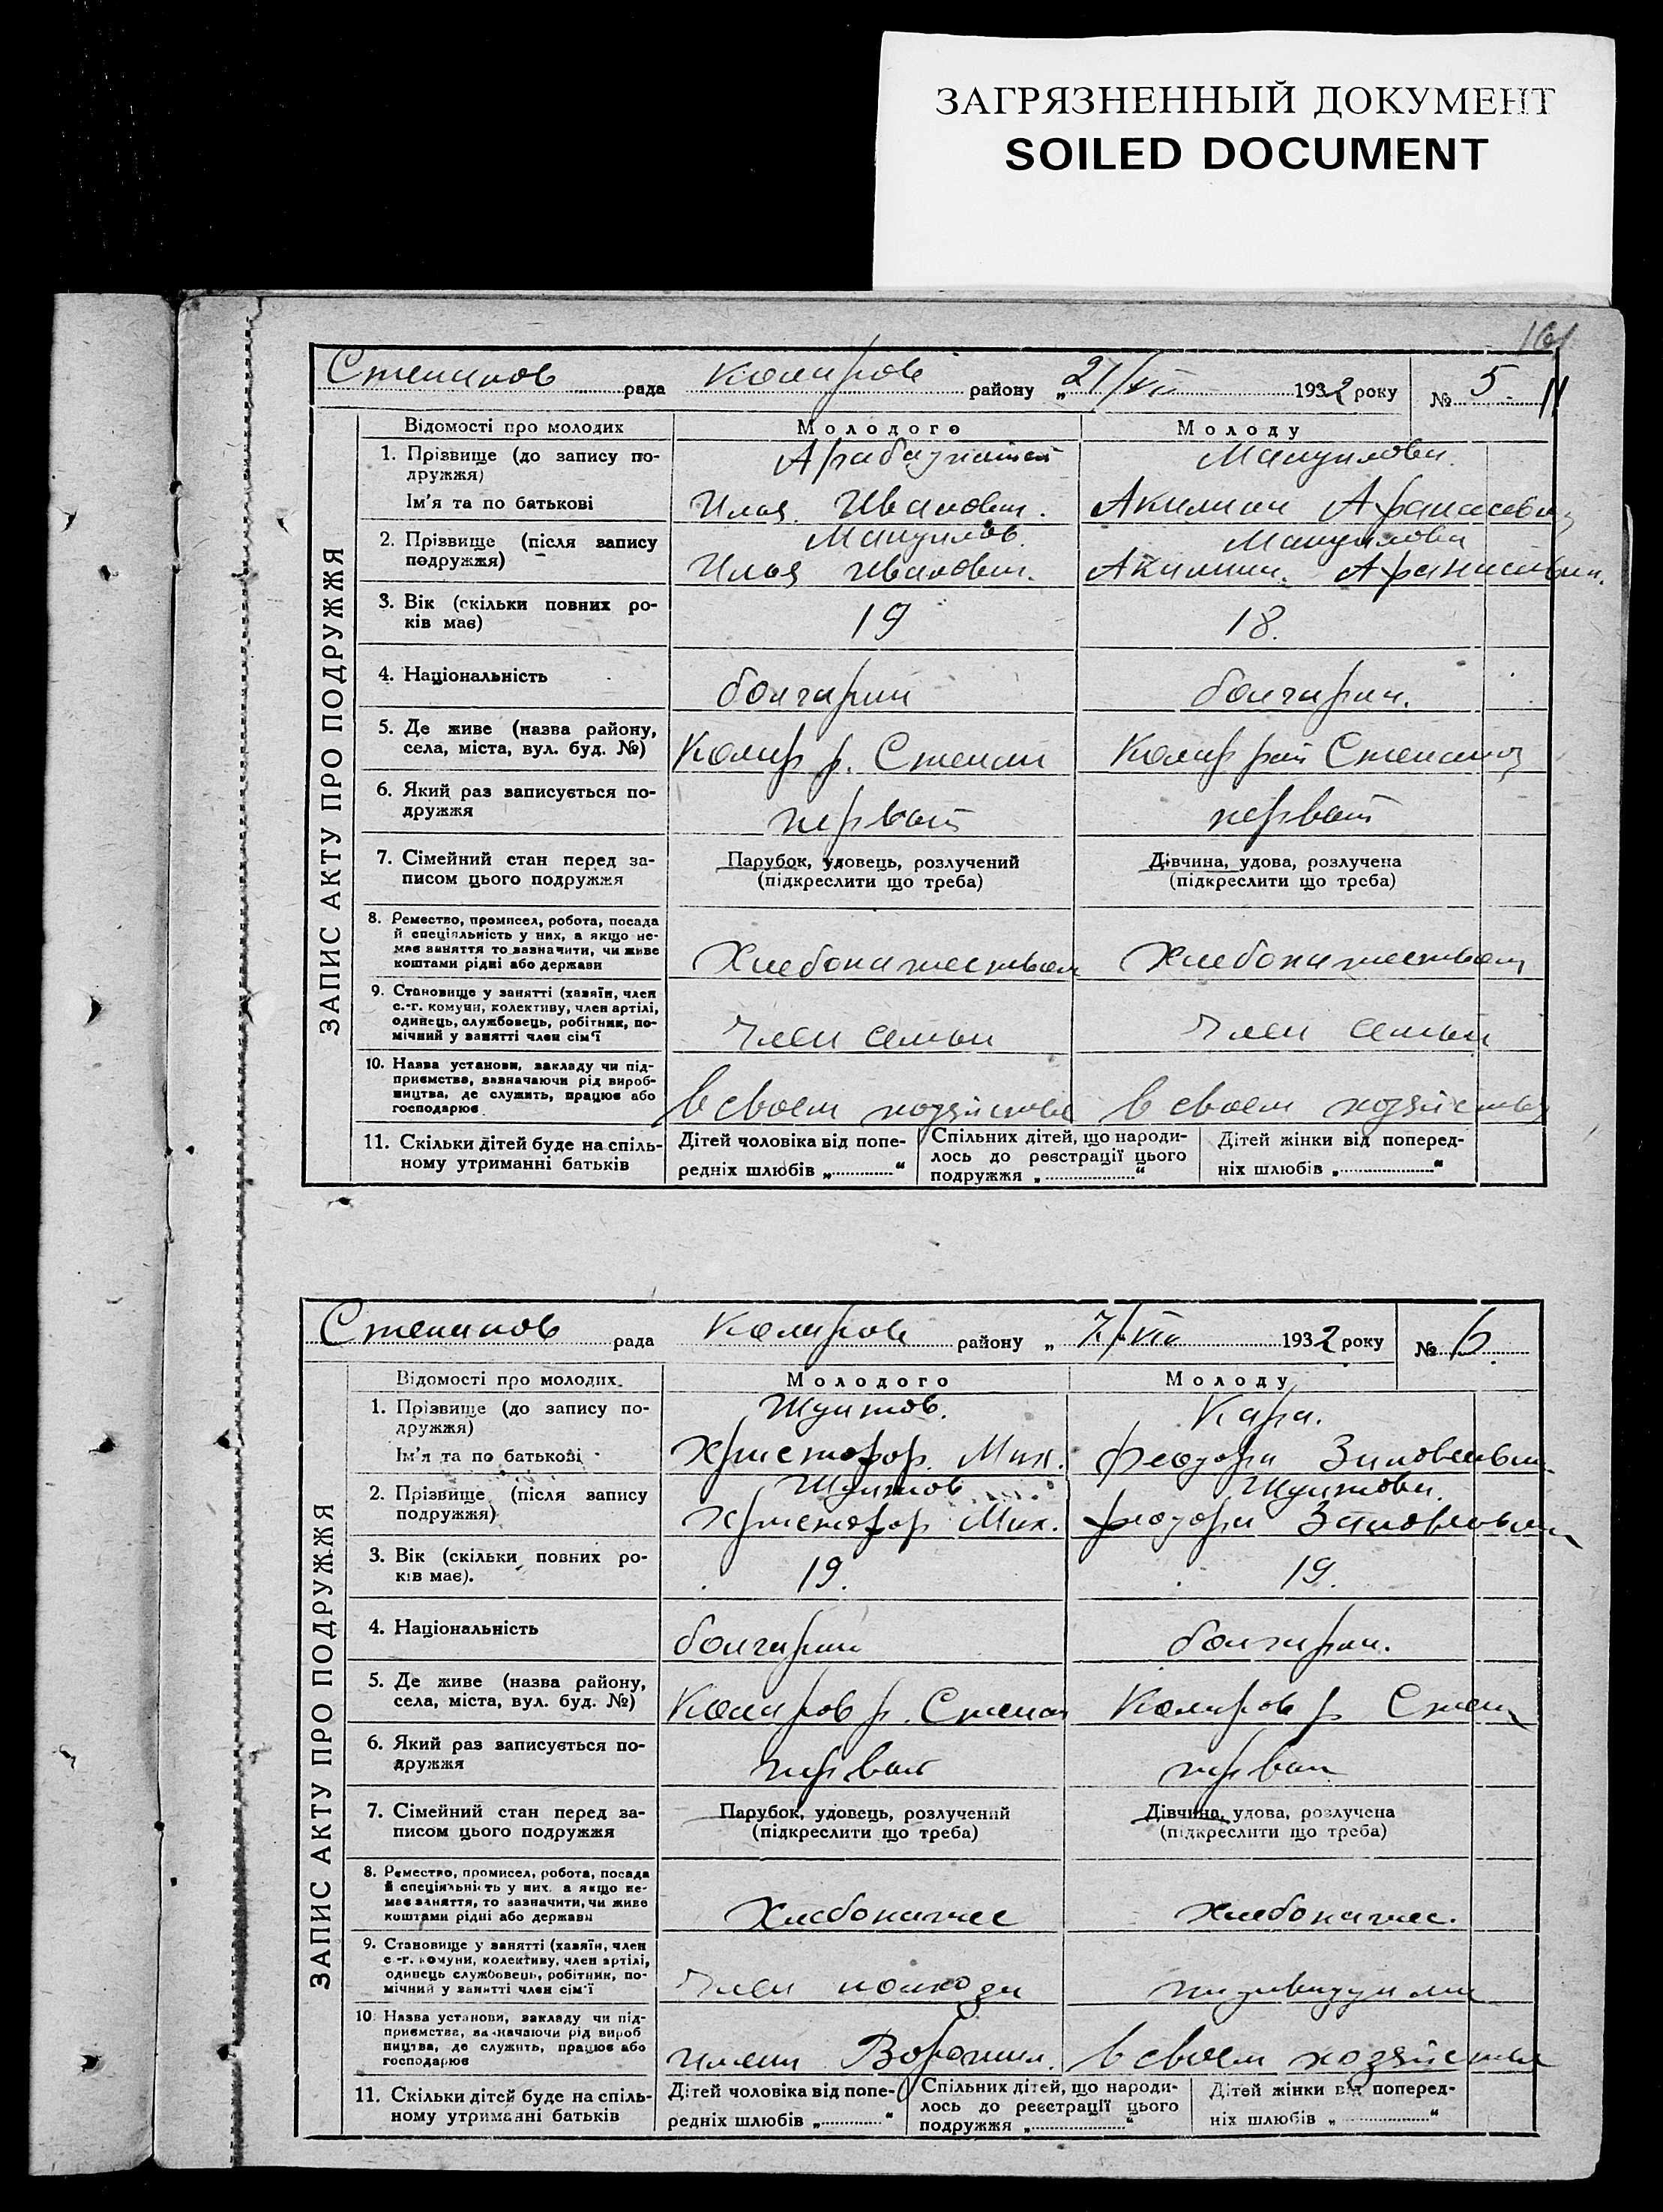 ЗАГРЯЗНЕННЫЙ ДОКУМЕНТ
SOILED DOCUMENT
161
Степанов рада Коларов району „ 27/VII 1932 року № 5
11
ЗАПИС АКТУ ПРО ПОДРУЖЖЯ
Відомості про молодих Молодого Молоду
1. Прізвище (до запису по-
дружжя)
Мануилова
Ім'я та по батькові Илья Иванович. Акилина Афанасевна
2. Прізвище (після запису
подружжя)
Мануилов. Мануилова
Илья Иванович. Акилина Афанасевна.
3. Вік (скільки повних ро-
ків має) 19 18.
4. Національність болгарин болгарка.
5. Де живе (назва району,
села, міста, вул. буд. №) Колар р. Степан Колар рай Степановка
6. Який раз записується по-
дружжя первый первый
7. Сімейний стан перед за-
писом цього подружжя
Парубок, удовець, розлучений
(підкреслити що треба)
Дівчина, удова, розлучена
(підкреслити що треба)
8. Ремество, промисел, робота, посада
й спеціяльність у них, а якщо не-
має заняття то зазначити, чи живе
коштами рідні або держави Хлебопашеством Хлебопашеством
9. Становище у занятті (хазяїн, член
с.-г. комуни, колективу, член артілі,
одинець, службовець, робітник, по-
мічний у занятті член сім'ї Член семьи Член семьи
10. Назва установи, закладу чи під-
приємства, зазначаючи рід вироб-
ництва, де служить, працює або
господарює в своем хозяйстве в своем хозяйстве
11. Скільки дітей буде на спіль-
ному утриманні батьків
Дітей чоловіка від попе-
редніх шлюбів „ “
Спільних дітей, що народи-
лось до реєстрації цього
подружжя „ “
Дітей жінки від поперед-
ніх шлюбів „ “
Степанов рада Коларов району „ 7/VIII 1932 року № 6.
ЗАПИС АКТУ ПРО ПОДРУЖЖЯ
Відомості про молодих. Молодого Молоду
1. Прізвище (до запису по-
дружжя)
Кара.
Ім'я та по батькові Христофор. Мих. Феодора Зиновеевна
2. Прізвище (після запису
подружжя)
Христофор Мих. Феодора Зиновеевна
3. Вік (скільки повних ро-
ків має). 19. 19.
4. Національність болгарин болгарка.
5. Де живе (назва району,
села, міста, вул. буд. №) Коларов р. Степан Коларов р Степ
6. Який раз записується по-
дружжя первый первый
7. Сімейний стан перед за-
писом цього подружжя
Парубок, удовець, розлучений
(підкреслити що треба)
Дівчина, удова, розлучена
(підкреслити що треба)
8. Ремество, промисел, робота, посада
й спеціяльність у них, а якщо не-
має заняття, то зазначити, чи живе
коштами рідні або держави Хлебопашес хлебопашес.
9. Становище у занятті (хазяїн, член
с.-г. комуни, колективу, член артілі,
одинець службовець, робітник, по-
мічний у занятті член сім'ї Член колхоза индивидуалка
10. Назва установи, закладу чи під-
приємства, зазначаючи рід вироб
ництва, де служить, працює або
господарює имени Ворошил. в своем хозяйстве
11. Скільки дітей буде на спіль-
ному утриманні батьків
Дітей чоловіка від попе-
редніх шлюбів „ “
Спільних дітей, що народи-
лось до реєстрації цього
подружжя „ “
Дітей жінки від поперед-
ніх шлюбів „ “